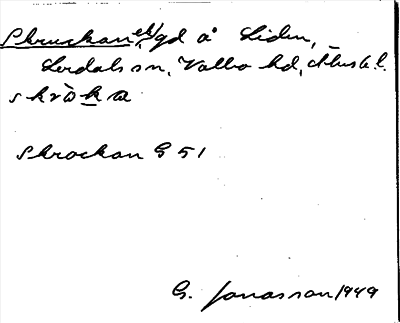 Skruckan el/gd å Liden,
Lerdals sn, Valbo hd, Älvsb. l.
skròka
Skrockan G 51
G. Jonasson 1949